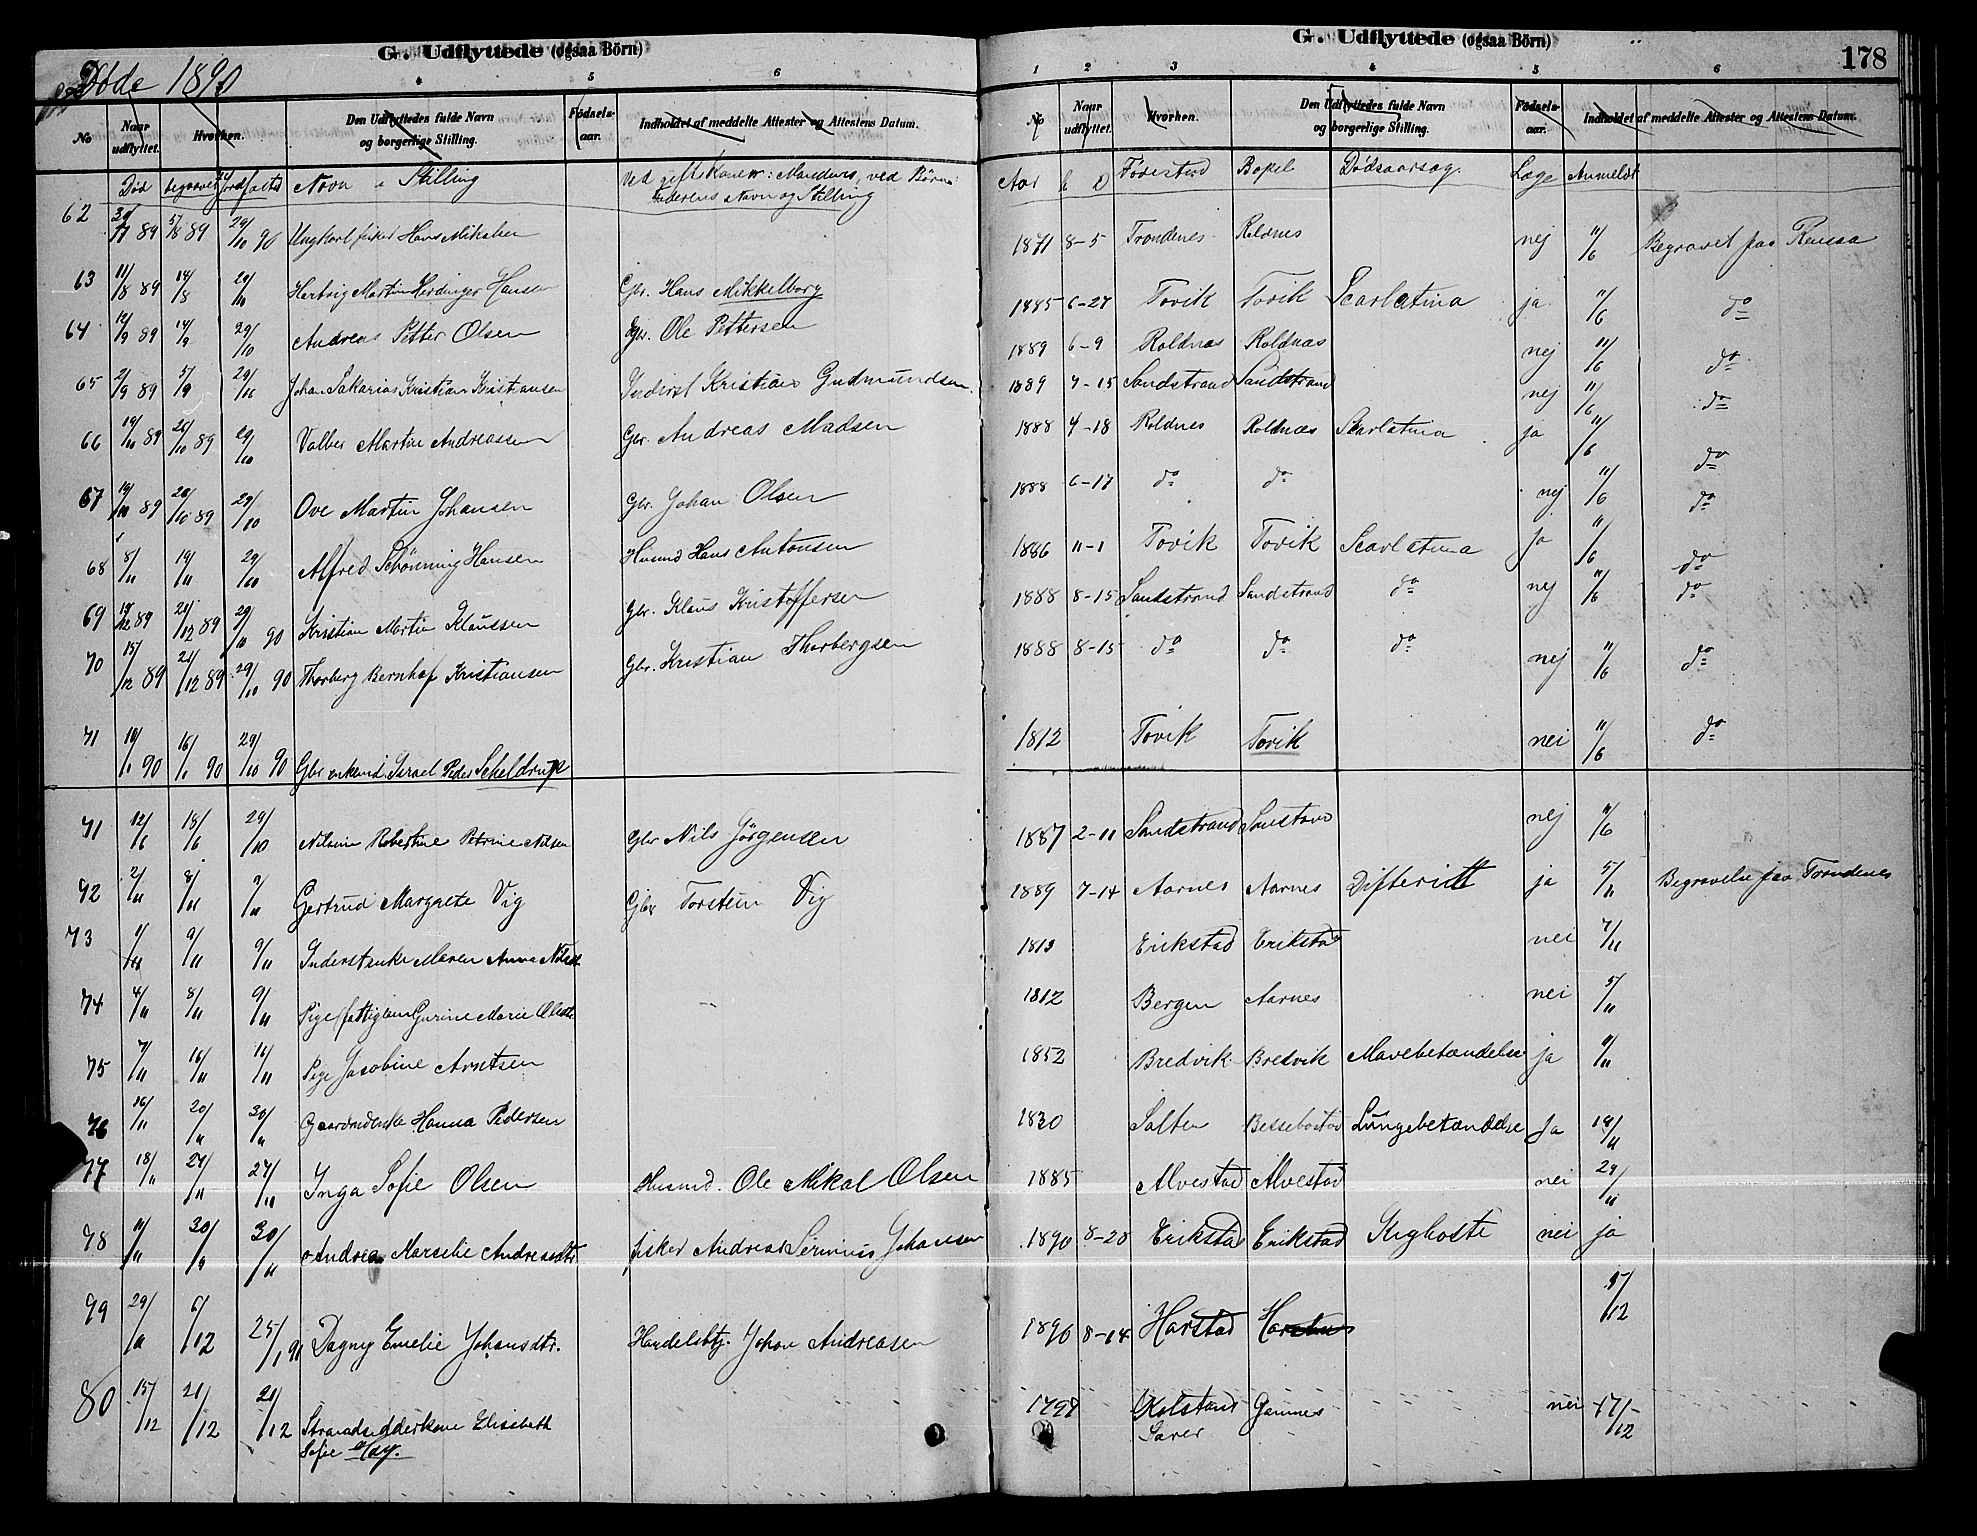 G. Udflyttede (ogsaa Börn)
Døde 1890
4 5 6
No Naar udflyttet. Hvorhen. Den Udflyttedes fulde Navn og borgerlige Stilling. Fødsels-aar. Indholdet af meddelte Attester og Attestens Datum.
Død begravet Jordfæstet Navn & Stilling Ved gifte Koner: Mandens, ved Børn: Faderens Navn og Stilling
62 89 5/8 89 29/10 90 Ungkarl fisker Hans Mikalsen
63 11/8 89 14/8 29/10 Hartvig Martin Herdinger Hansen Gbr. Hans Mikkelborg
64 12/9 89 14/9 29/10 Andreas Petter Olsen Gbr. Ole Pettersen
65 2/9 89 5/9 29/10 Johan Sakarias Kristian Kristiansen Inderst Kristian Gudmundsen
66 19/10 89 26/10 89 29/10 Valber Martin Andreassen Gbr. Andreas Madsen
67 19/10 89 26/10 89 29/10 Ove Martin Johansen Gbr. Johan Olsen
68 8/11 19/11 29/10 Alfred Schönning Hansen Husmd Hans Antonsen
69 14/12 89 21/12 89 29/10 90 Kristian Martin Klaussen Gbr. Klaus Kristoffersen
70 15/12 89 21/12 89 29/10 90 Thorberg Bernhof Kristiansen Gbr. Kristian Thorbergsen
71 10/1 90 16/1 90 29/10 90 Gbr enkemd Israel Peder Scheldrup
71 12/6 15/6 29/10 Nilsine Robertine Petrine Nilsen Gbr Nils Jörgensen
92 2/11 8/11 9/11 Gertrud Margrete Vig Gbr Torstein Vig
73 1/11 9/11 9/11 Inderstenke Maren Anna Nilsd.
74 4/11 8/11 9/11 Pige fattiglem Gurine Marie Olsdtr.
75 7/11 16/11 16/11 Pige Jacobine Arntsen
76 16/11 20/11 30/11 Gaardmdenke Hanna Pedersen
77 18/11 27/11 27/11 Inga Sofie Olsen Husmd. Ole Mikal Olsen
78 11/11 30/11 30/11 Andrea Marcelie Andreasdtr. fisker Andreas Serinius Johansen
79 29/11 6/12 25/1 91 Dagny Emelie Johansdtr. Handelsbtj. Johan Andreasen
80 15/12 21/12 21/12 Strandsidderkone Elisabeth
Sofie Hay.
G. Udflyttede (ogsaa Börn)
178
1 2 3 4 5 6
No Naar udflyttet. Hvorhen. Den Udflyttedes fulde Navn og borgerlige Stilling. Fødsels-aar. Indholdet af meddelte Attester og Attestens Datum.
Aar D Fødested Bopel Dødsaarsag Læge Anmeldt
1871 8-5 Trondenes Roldnes nej 11/6 Begravet paa Rensaa
1885 6-27 Tovik Tovik Scarlatina ja 11/6 do
1889 6-9 Roldnæs Roldnæs nej 11/6 do
1889 7-15 Sandstrand Sandstrand nej 11/6 do
1888 4-18 Roldnes Roldnæs Scarlatina ja 11/6 do
1888 6-17 do do nej 11/6 do
1886 11-1 Tovik Tovik Scarlatina ja 11/6 do
1888 8-15 Sandstrand Sandstrand do nej 11/6 do
1888 8-15 do do do nej 11/6 do
1812 Tovik Tovik nei 11/6 do
1887 2-11 Sandstrand nej 11/6
1889 7-14 Aarnes Aarnes Difterit ja 5/11 Begravelse paa Trondenes
1813 Erikstad Erikstad nei 7/11
1812 Bergen Aarnes nei 5/11
1852 Bredvik Bredvik Mavebetændelse ja 9/11
1830 Salten Bessebostad Lungebetændelse Ja 19/11
1885 Alvestad Alvestad nei 29/11
1890 8-20 Erikstad Erikstad Kighoste nei ja
1890 8-14 Harstad Harstad 5/12
1797 Kolstand Gamnes nei 17/12